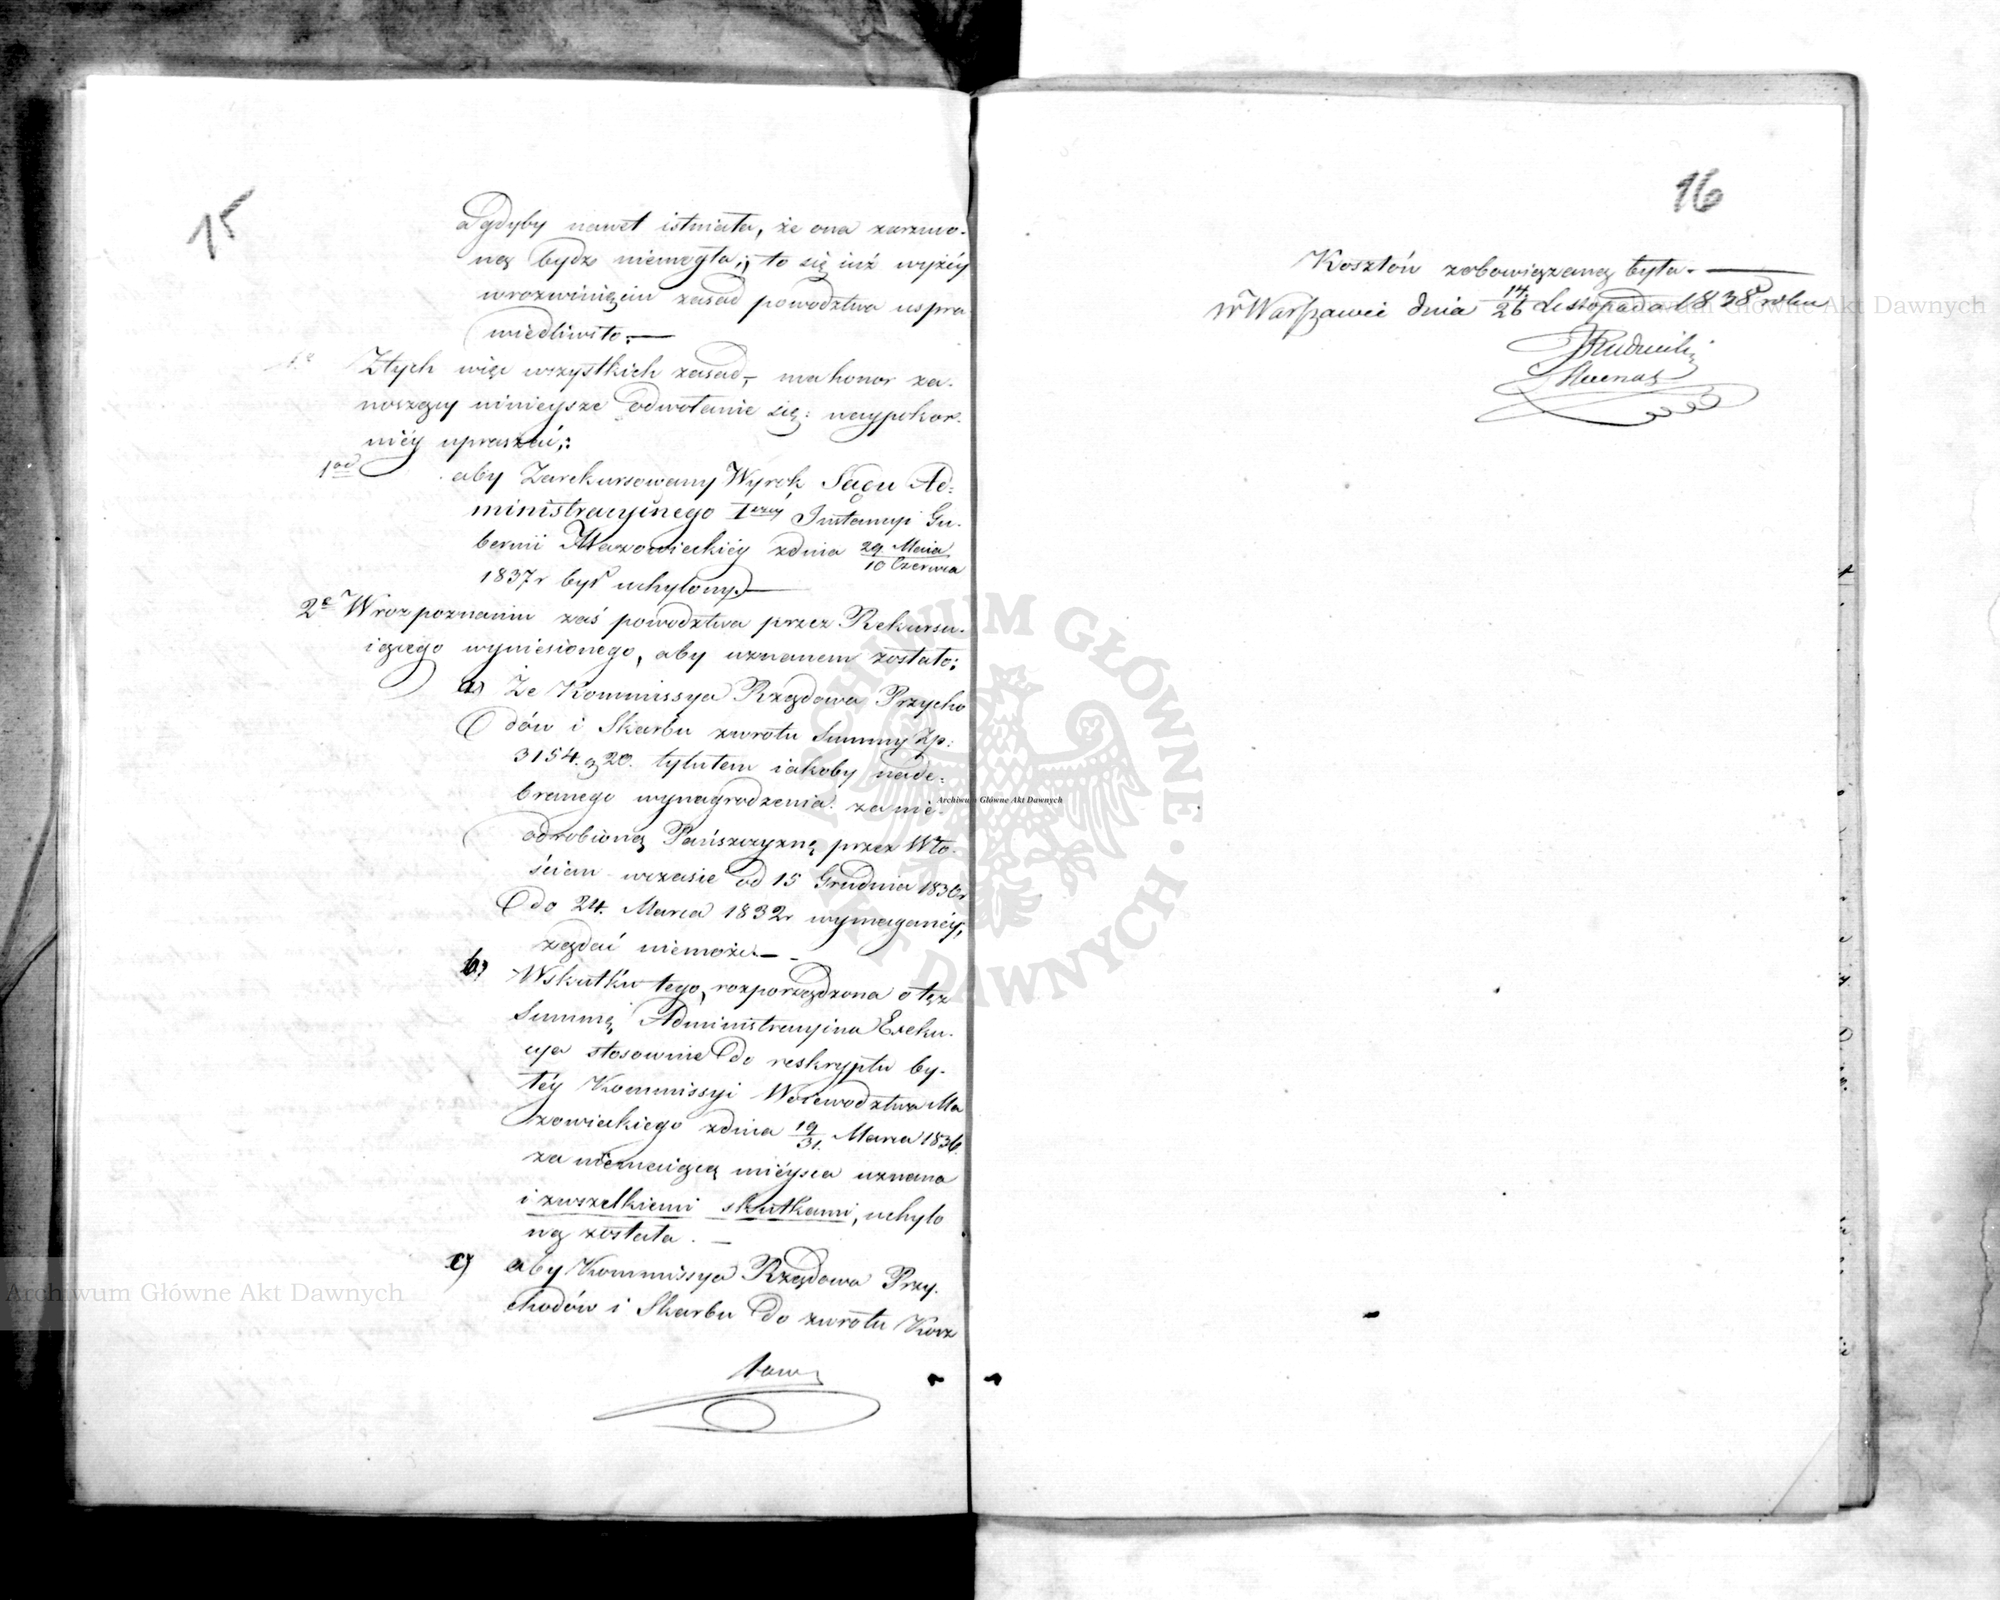 15
a gdyby nawet istniała, że ona zarzuco-
ną bydz niemogła; to się iuż wyżéy
wrozwinięciu zasad powodztwa uspra
wiedliwiło.—
Ztych więc wszystkich zasad, ma honor za-
noszący ninieysze odwołanie się: naypokor-
niéy upraszać:
1od aby Zarekursowany Wyrok Sądu Ad-
ministracyinego Iszey Instancyi Gu-
bernii Mazowieckiéy zdnia 29 Maia / 10 Czerwca
1837r był uchylony.—
2e Wrozpoznaniu zaś powodztwa przez Rekursu-
iącego wyniesionego, aby uznanem zostało:
a) Że Kommissya Rządowa Przycho
dów i Skarbu zwrotu Summy Zp:
3154. g 20. tytułem iakoby nade-
branego wynagrodzenia za nie-
odrobioną Pańszczyznę przez Wło-
ścian wczasie od 15 Grudnia 1830r
do 24. Marca 1832r wymaganéy,
żądać niemoże.—
b) Wskutku tego, rozporządzona o tęż
Summę Administracyina Exeku-
cya stosownie do reskryptu by-
łéy Kommissyi Woiewodztwa Ma
zowieckiego zdnia 19/31. Marca 1836.
za niemaiącą mièysca uznana
i zwszelkiemi skutkami, uchylo
ną została. —
c) aby Kommissya Rządowa Przy-
chodów i Skarbu do zwrotu Kosz
tow
16
Kosztów zobowiązaną była.—
w Warszawie dnia 14/26 Listopada 1838 roku
Archiwum Główne Akt Dawnych
Archiwum Główne Akt Dawnych
Archiwum Główne Akt Dawnych
ARCHIWUM GŁÓWNE AKT DAWNYCH